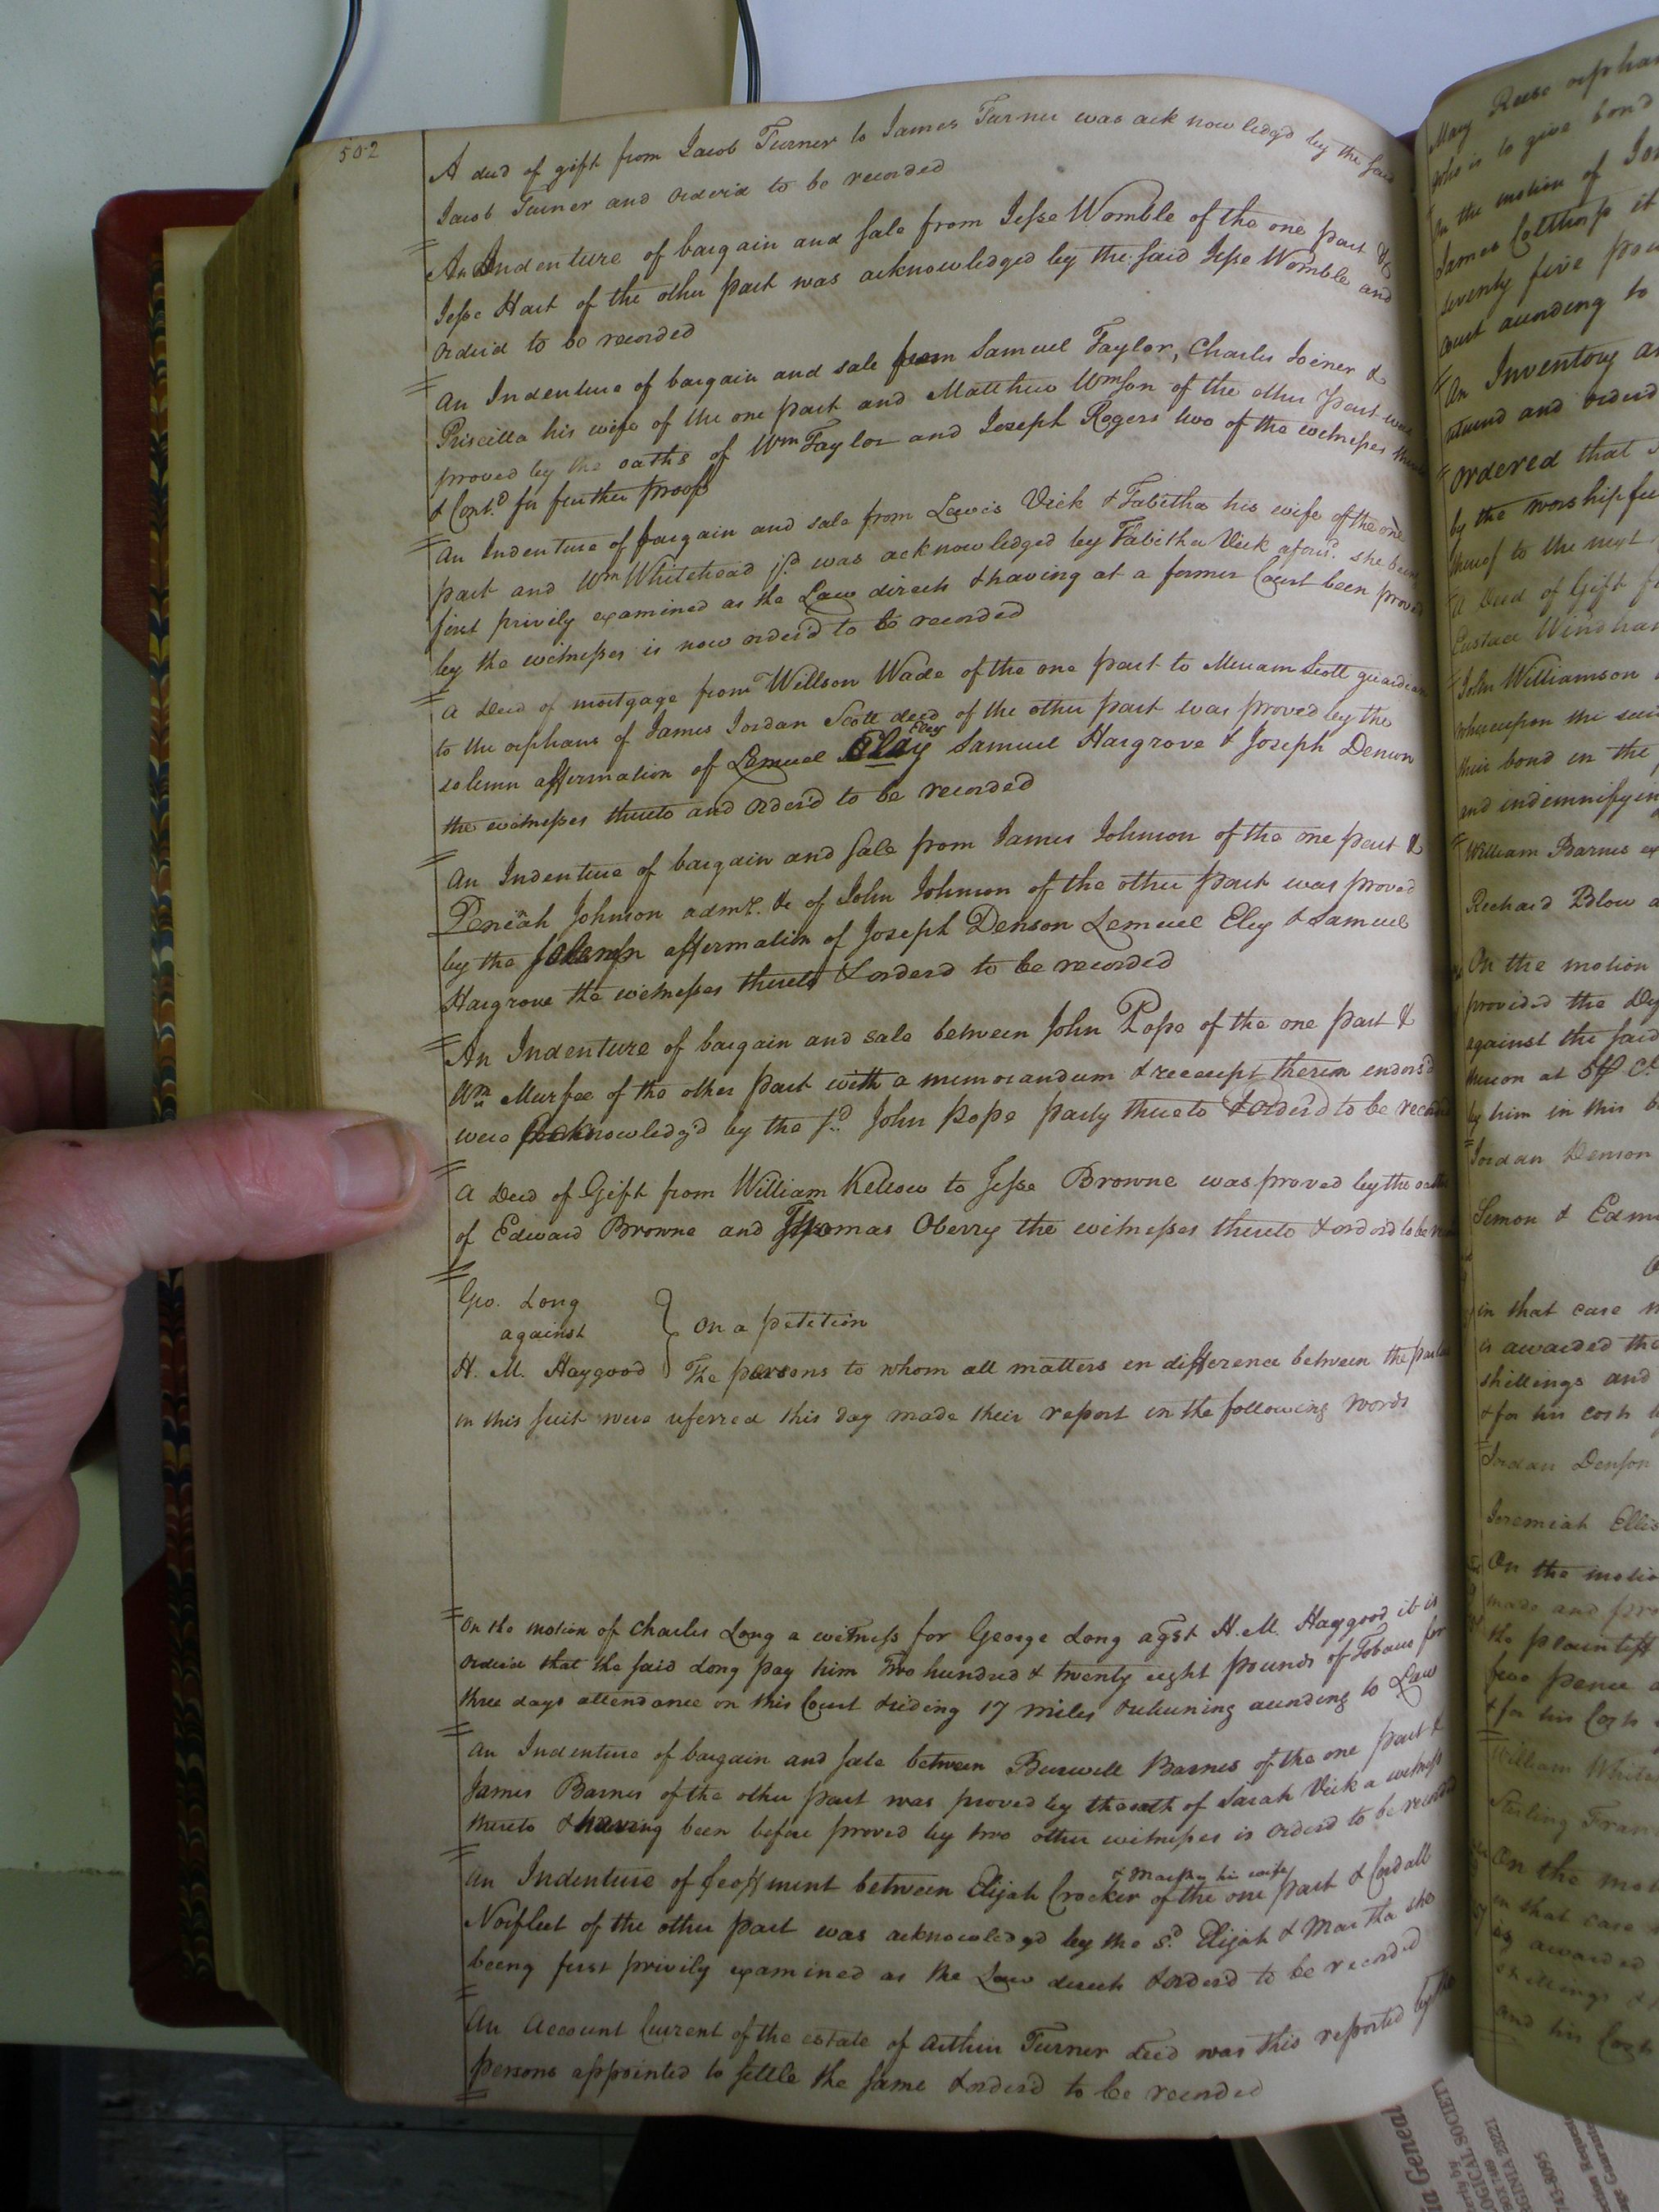 502
A deed of gift from Jacob Turner to James Turner was acknowledg'd by the said
Jacob Turner and Order'd to be recorded
An Indenture of bargain and sale from Jesse Womble of the one part &
Jesse Hart of the other part was acknowledged by the said Jesse Womble and
order'd to be recorded
An Indenture of bargain and sale from Samuel Taylor, Charles Joiner &
Priscilla his wife of the one part and Matthew Wmson of the other part was
proved by the oaths of Wm Taylor and Joseph Rogers two of the witnesses
& Contd for further proof
An Indenture of bargain and sale from Lewis Vick & Tabitha his wife of the one
part and Wm Whitehead jr was acknowledged by Tabitha Vick aforesd. she being
first privily examined as the Law directs & having at a former Court been proved
by the witnesses is now order'd to be recorded
A Deed of mortgage from Willson Wade of the one part to Miriam Scott guardian
to the orphans of James Jordan Scott decd of the other part was proved by the
solemn affermation of Lemuel Eley Samuel Hargrove & Joseph Denson
the witnesses thereto and Order'd to be recorded
An Indenture of bargain and sale from James Johnson of the one part &
Peninah Johnson admr. &c of John Johnson of the other part was proved
by the solemn affermation of Joseph Denson Lemuel Eley & Samuel
Hargrove the witnesses thereto & order'd to be recorded
An Indenture of bargain and sale between John Pope of the one part &
Wm Murfee of the other part with a memorandum & receipt therein endors'd
were acknowledg'd by the sd John Pope party thereto & order'd to be recorded
A Deed of Gift from William Kellow to Jesse Browne was proved by the oaths
of Edward Browne and Thomas Oberry the witnesses thereto & ordord to be
Geo. Long
against
on a petition
H. M. Haygood The persons to whom all matters in difference between the parties
in this suit were referred this day made their report in the following words
On the motion of Charles Long a witness for George Long agst H. M. Haygood it is
order'd that the said Long pay him Two hundred & twenty eight pounds of Tobacco for
three days attendance on this Court & riding 17 miles & returning according to Law
An Indenture of bargain and sale between Burwell Barnes of the one part &
James Barnes of the other part was proved by the oath of Sarah Vick a witness
thereto & having been before proved by two other witnesses is order'd to be recorded
& Martha his wife
An Indenture of feoffment between Elijah Crocker of the one part & Cordall
Norfleet of the other part was acknowledg'd by the sd Elijah & Martha she
being first privily examined as the Law directs & order'd to be recorded
An Account Current of the estate of Arthur Turner decd was this reported by the
persons appointed to settle the same & order'd to be recorded
Mary Reese
who is to give bond
On the motion of
James Calthorp it
seventy five
court according to
An Inventory
returned and ordered
Ordered that
by the worshipful
thereof to the next
A Deed of Gift
Eustace Windham
John Williamson
whereupon the said
their bond in the
and indemnifying
William Barnes
Richard Blow
On the motion
provided the
against the said
thereon at
by him in this
Jordan Denson
Simon & Edm
in that case
is awarded the
shillings and
& for his costs
Jordan Denson
Jeremiah Ellis
On the motion
made and
the plaintiff
five pence
& for his Costs
William White
Sterling Fran
On the mo
in that case
is awarded
shillings &
and his Costs
OGICAL SOCIETY
GINIA 23221